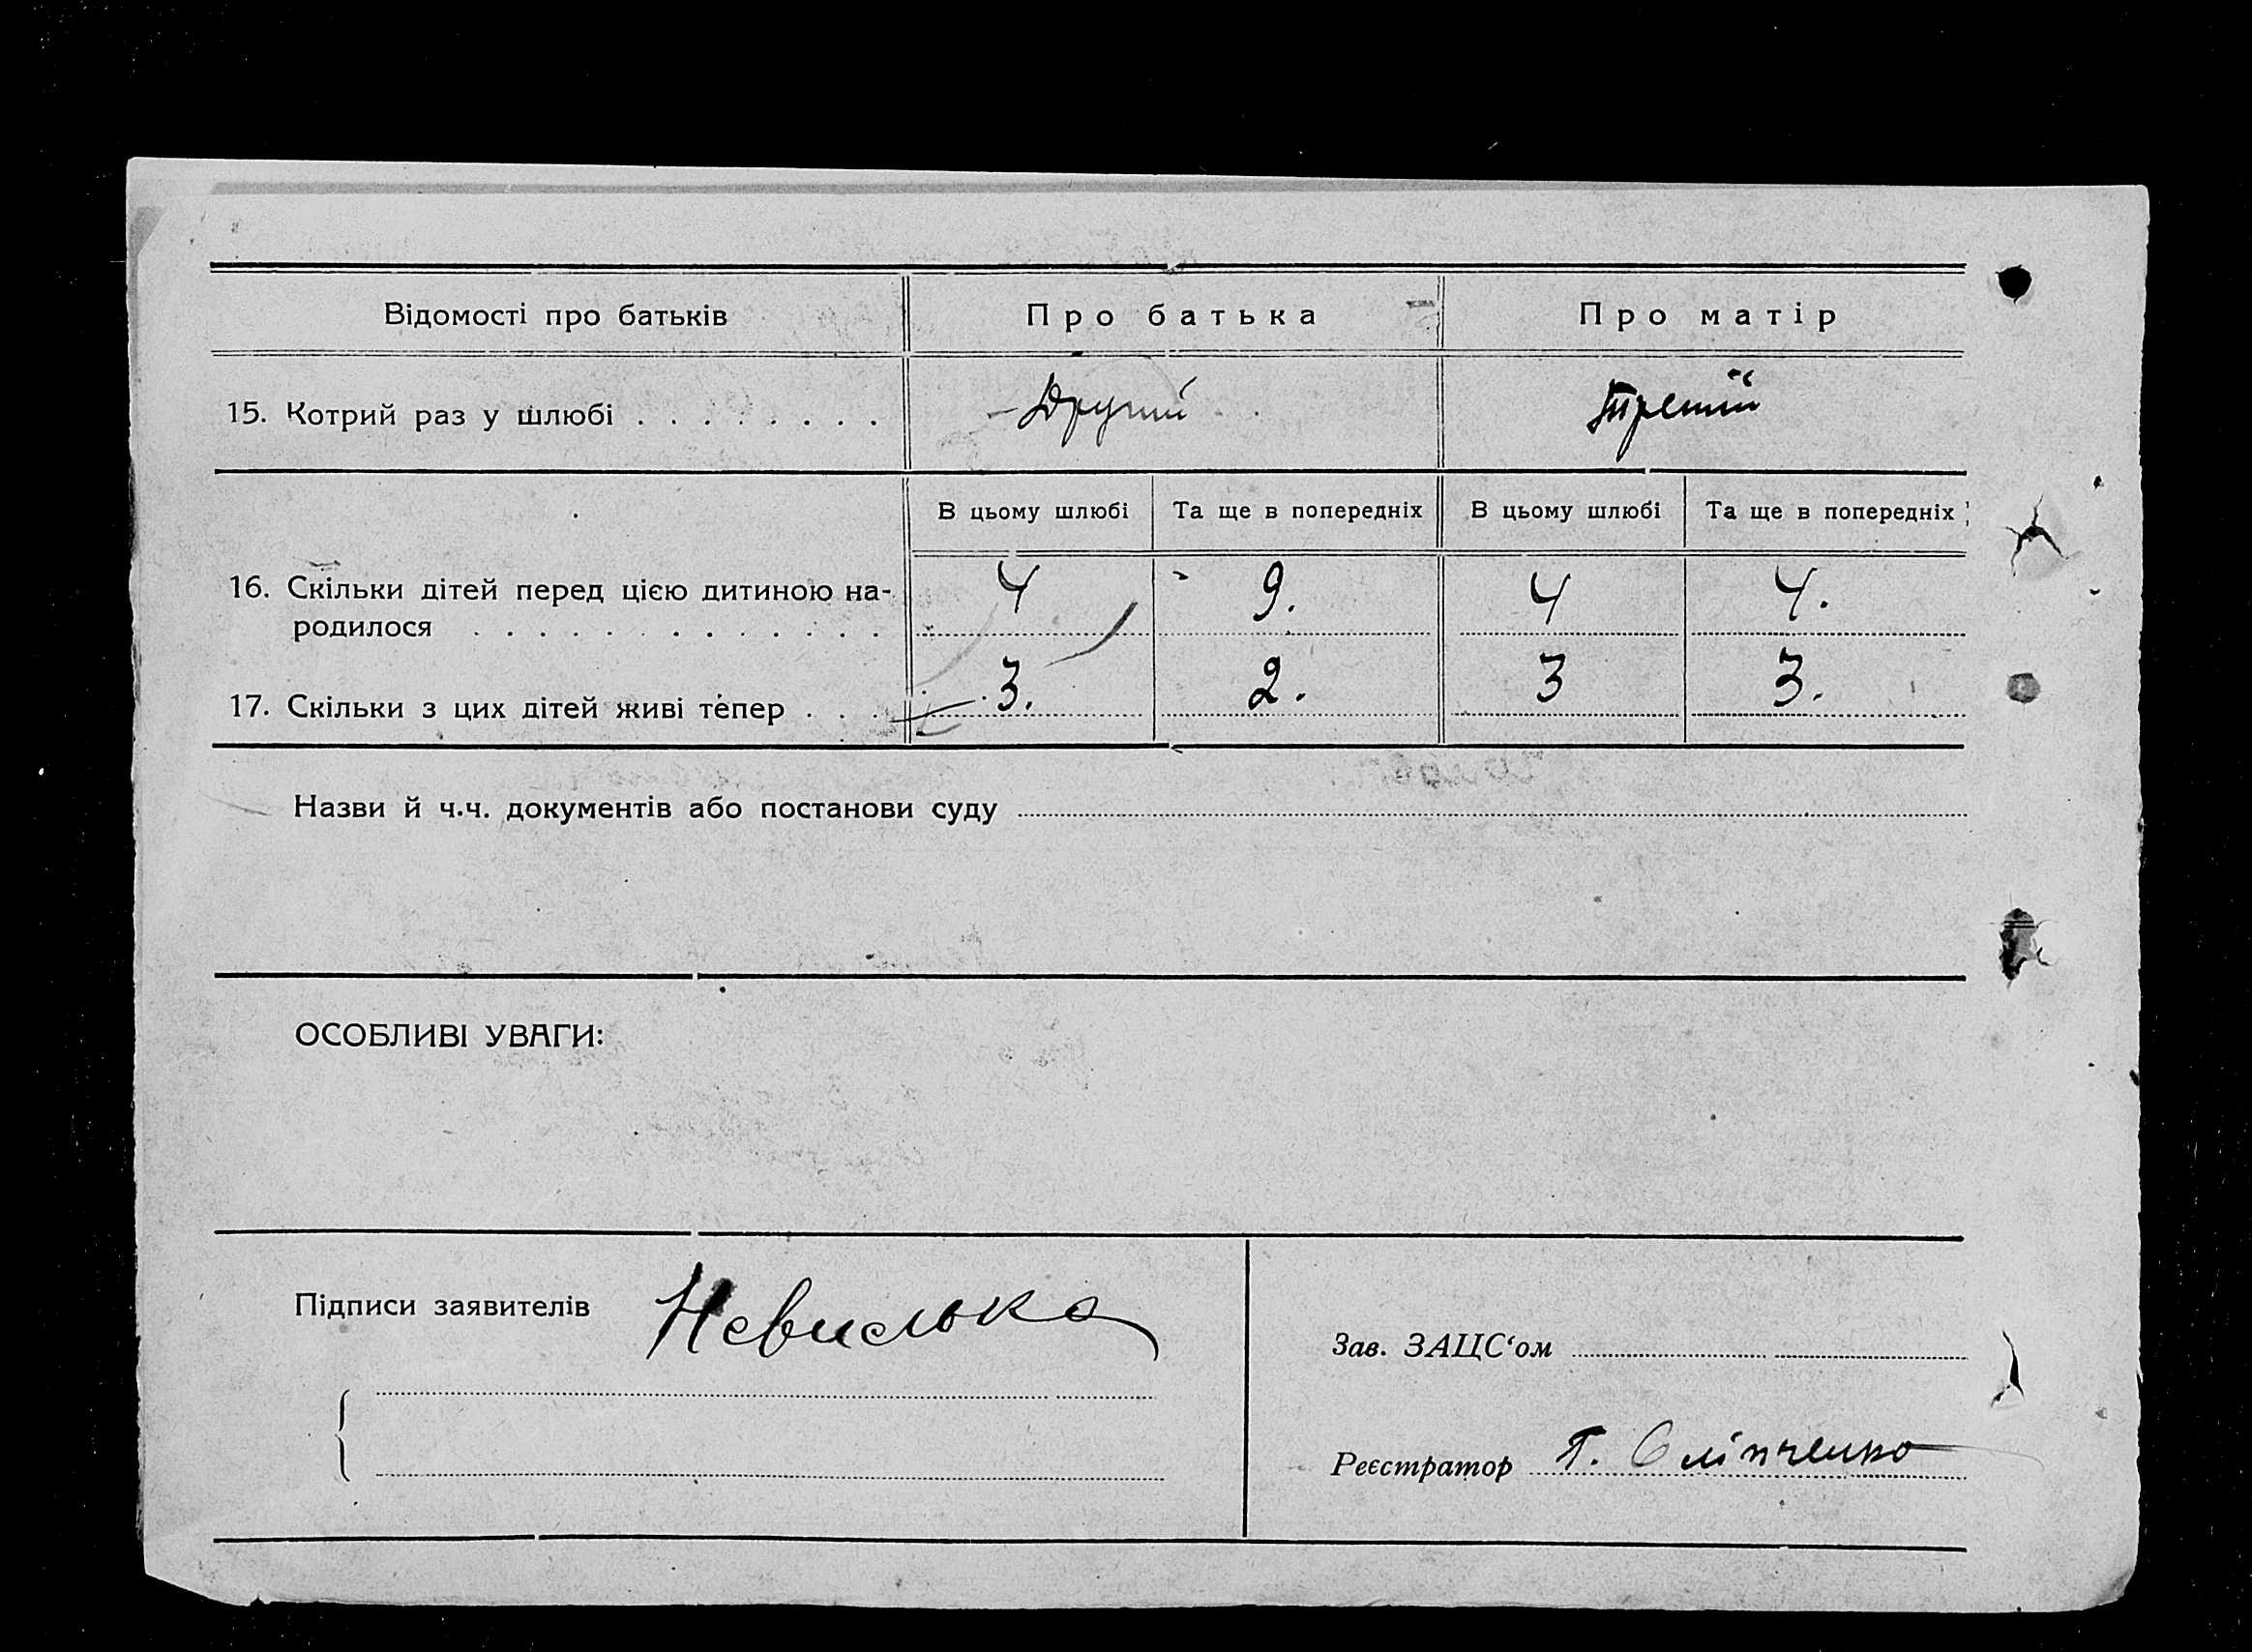 Відомості про батьків Про батька Про матір
15. Котрий раз у шлюбі . . . . . . . . Другий Третій
В цьому шлюбі Та ще в попередніх В цьому шлюбі Та ще в попередніх
16. Скільки дітей перед цією дитиною на- 4 9. 4 4.
родилося . . . . . . . . . . . . .
17. Скільки з цих дітей живі тепер . . . 3. 2. 3 3.
Назви й ч.ч. документів або постанови суду
ОСОБЛИВІ УВАГИ:
Підписи заявителів
Зав. ЗАЦС‘ом
Реєстратор Г.